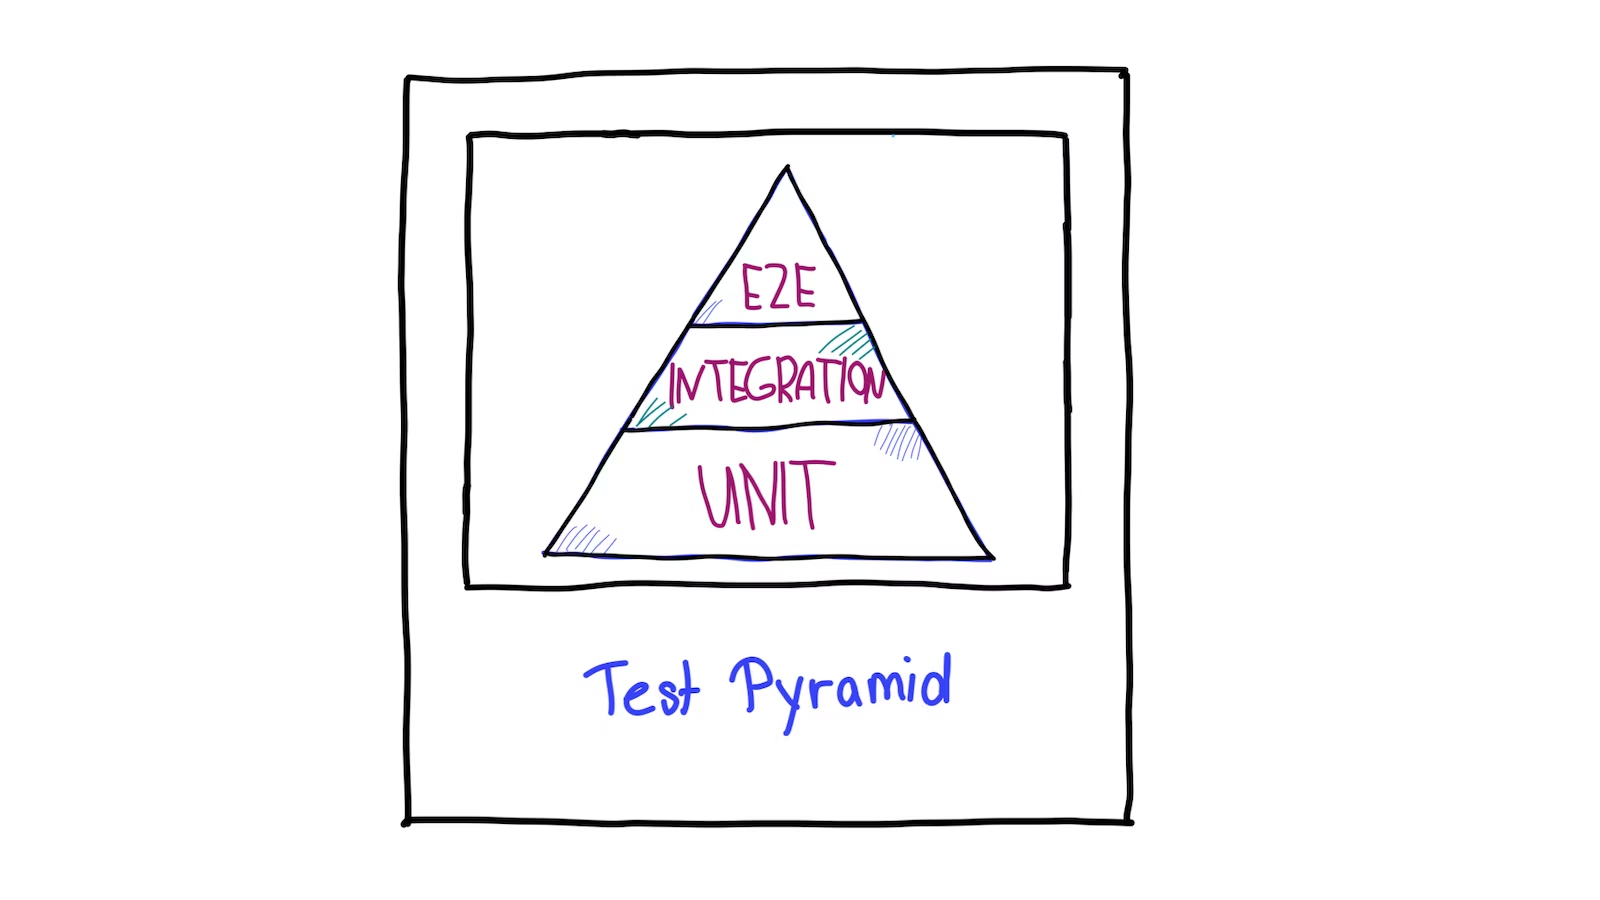 E2E
INTEGRATION
UNIT
Test Pyramid